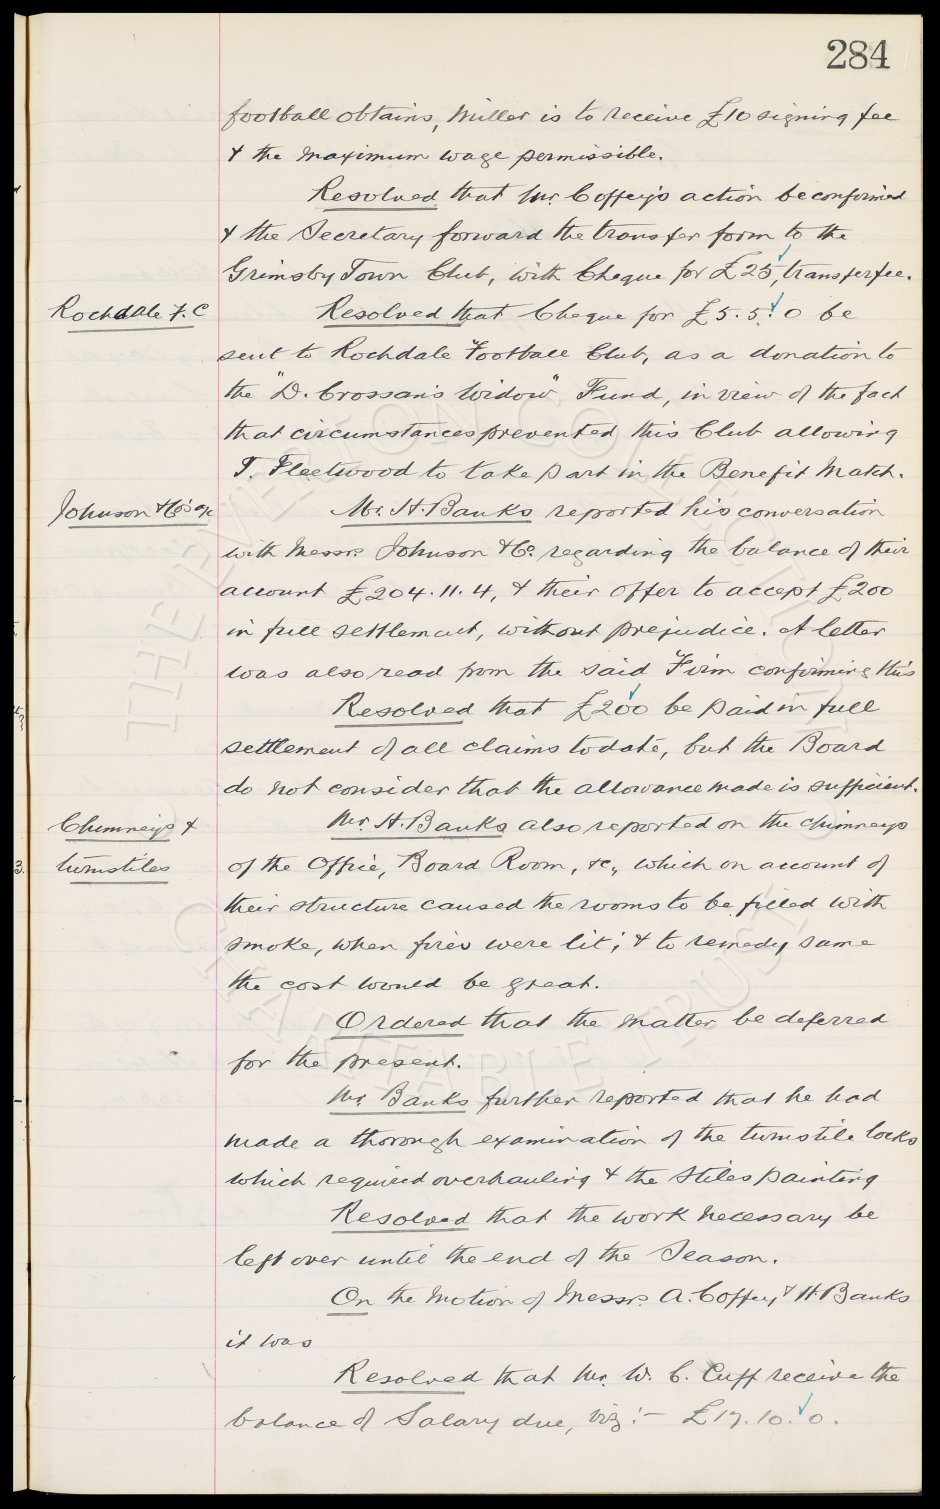 284
football obtains, Miller is to receive £10 signing fee
& the maximum wage permissible.
Resolved that Mr. Coffey's action be confirmed
& the Secretary forward the transfer form to the
Grimsby Town Club, with Cheque for £25, transfer fee.
Rochdale F.C
Resolved that Cheque for £5.5.0 be
sent to Rochdale Football Club, as a donation to
the "D. Crossan's Widow" Fund, in view of the fact
that circumstances prevented this Club allowing
T. Fleetwood to take part in the Benefit Match.
Johnson & Co's a/c
Mr. H. Banks reported his conversation
with Messrs Johnson & Co. regarding the balance of their
account £204.11.4, & their offer to accept £200
in full settlement, without prejudice. A letter
was also read from the said Firm confirming this
Resolved that £200 be paid in full
settlement of all claims to date, but the Board
do not consider that the allowance made is sufficient.
Chimneys &
turnstiles
Mr. H. Banks also reported on the chimneys
of the Office, Board Room, &c, which on account of
their structure caused the rooms to be filled with
smoke, when fires were lit; & to remedy same
the cost would be great.
Ordered that the matter be deferred
for the present.
Mr. Banks further reported that he had
made a thorough examination of the turnstile locks
which required overhauling & the Stiles painting
Resolved that the work necessary be
left over until the end of the Season.
On the Motion of Messrs. A. Coffey & H. Banks
it was
Resolved that Mr. W. C. Cuff receive the
balance of Salary due, viz:- £17.10.0.
THE EVERTON COLLECTION
CHARITABLE TRUST